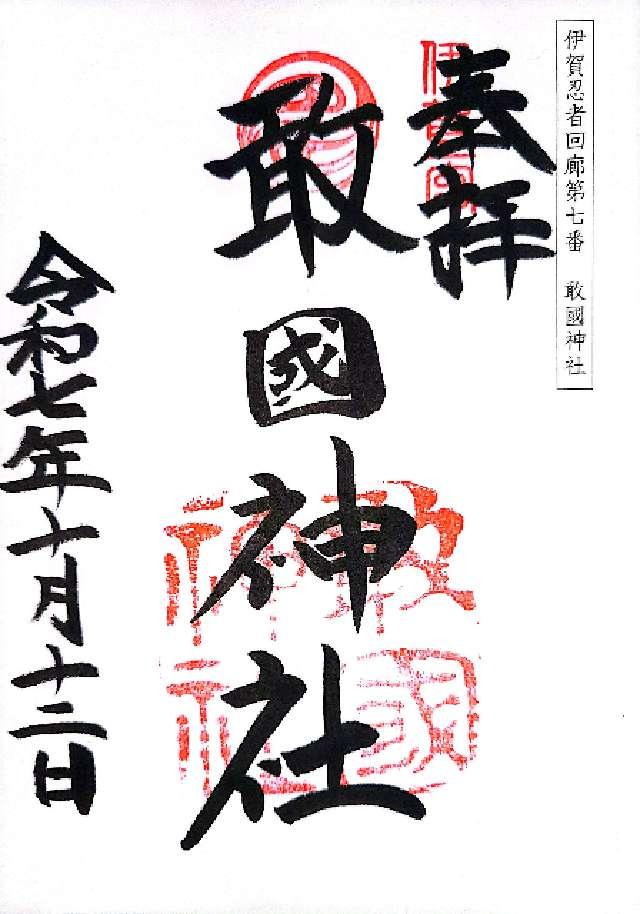 伊賀忍者回廊第七番　敢國神社
奉拝
敢國神社
令和七年十月十二日
敢國神社